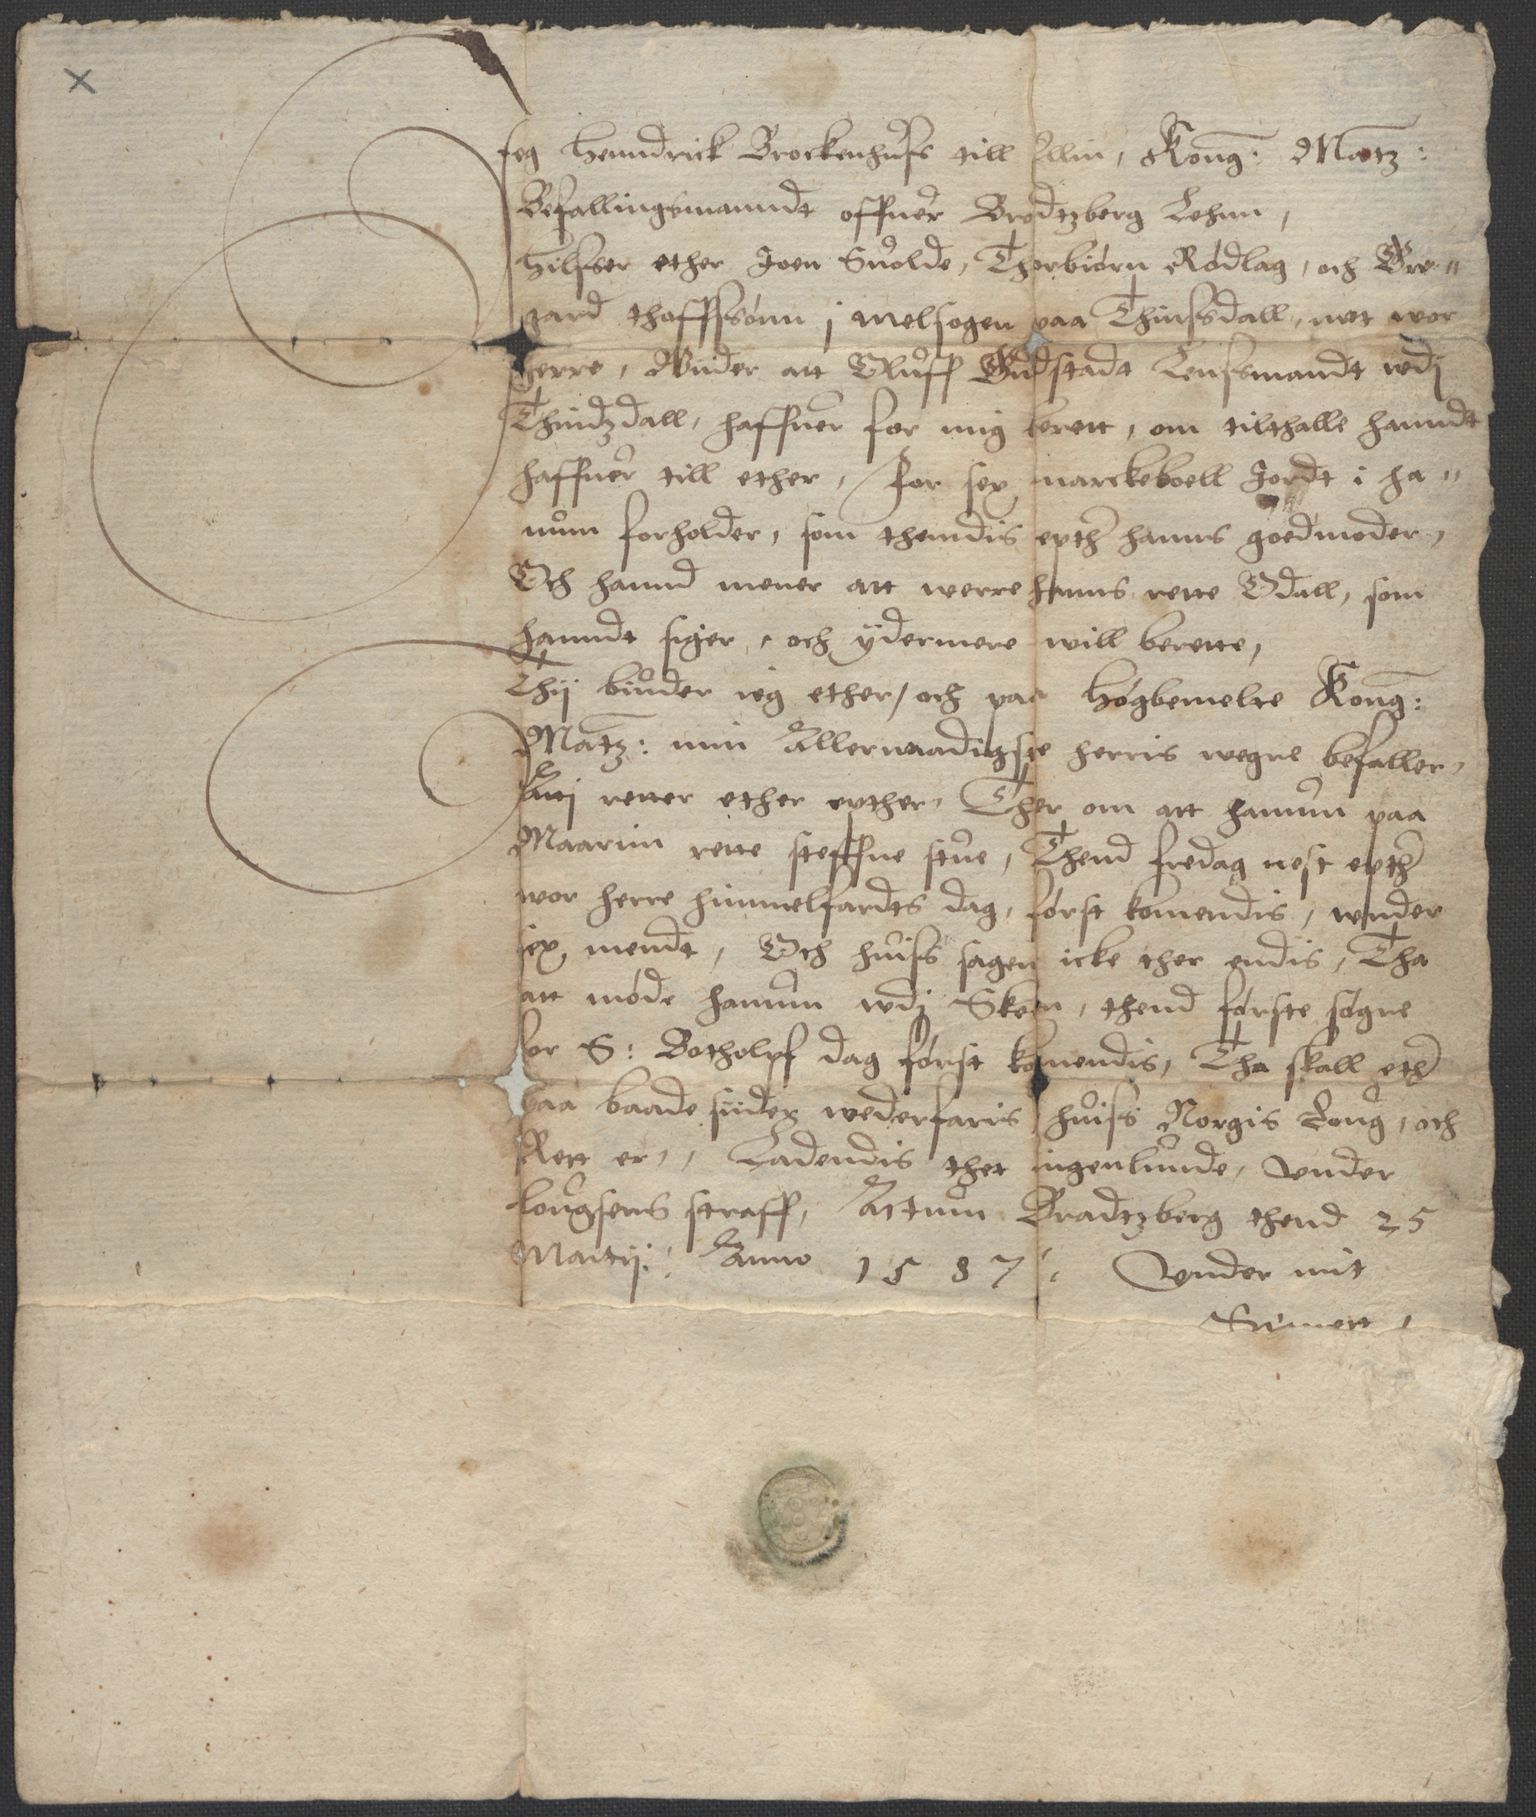 Jeg Henndrick Brockenhuss till Ellin, Kong: Matz:
Befallingsmanndt offuer Bradtzberg Lehnn,
hilser ether Joen Suolde, Thorbiørn Rødlag, och Bre„
gard thaffssønn j melsogen paa Thinssdall, met wor
herre, Wider att Oluff Gudstadt Lensmandt wdj
Thindzdall, haffuer for mig berett, om tilthalle hanndt
haffuer till ether, for sex marckeboell Jordt i ha„
num forholder, som themdis epther hanns goedmoder,
Och hannd mener att werre hanns rette Odall, som
hanndt siger, och ÿdermere will berette,
Thij biuder ieg ether, och paa Høgbemelte Kong:
Matz: min Allernaadigste herris wegne befaller,
Atj retter ether epther, Ther om att hanum paa
Maarim rette steffne stue, Thend fredag nest epther
wor herre himmelfardts dag, først komendis, wnder
sex mendt, Och huiss sagen icke ther endis, Tha
att møde hanum wdj Skeen, thend første søgne
for S: Botholpf dag først komendis, Tha skall ether
paa baade siider wederfaris huiss Norgis Loug, och
Rett er,, Ladendis thet ingenlunde, Vnder
lougsens straff, Actum Bradtzberg thend 25
Martij: Anno 1587: Vnder mit
Signett,